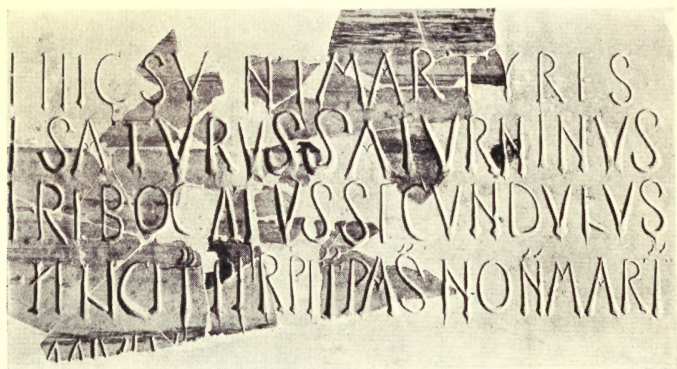 HIC SVNT MARTYRES
SATVRVS SATVRNINVS
REBOCATVS SECVNDVLVS
FELICIT PERPET PAS NON MART